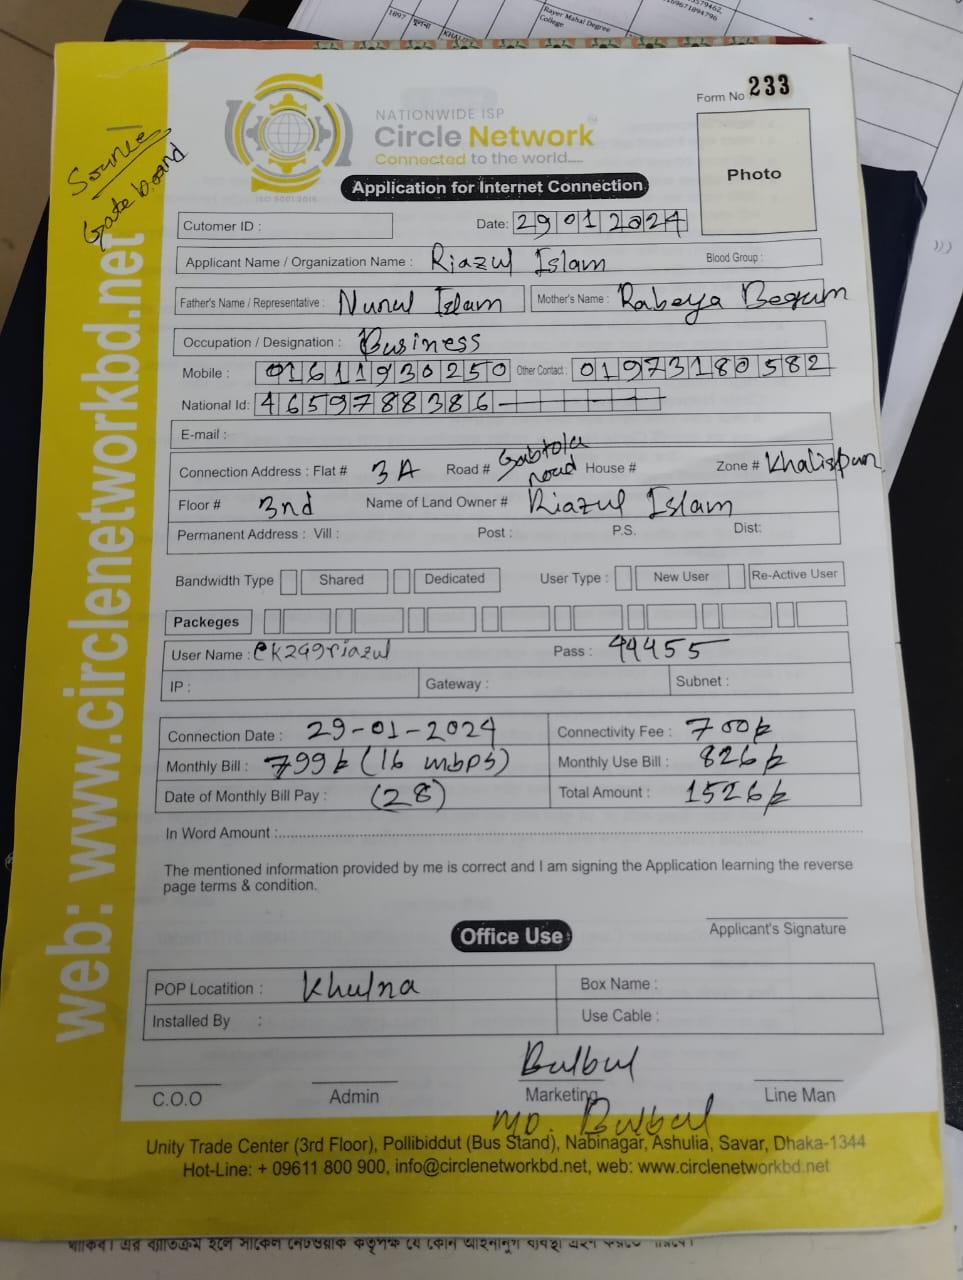 1897
Rayer Mahal Degree
College
Form No 233
NATIONWIDE ISP
Circle Network
Connected to the world.....
ISO 9001:2015
Application for Internet Connection
Photo
Source
Gate board
web: www.circlenetworkbd.net
Cutomer ID :
Date: 29012024
Applicant Name / Organization Name : Riazul Islam Blood Group :
Father's Name / Representative : Nurul Islam Mother's Name : Rabeya Begum
Occupation / Designation : Business
Mobile : 01611930250 Other Contact : 01973180582
National Id: 4659788386
E-mail :
Connection Address : Flat # 3A Road # Gabtola road House # Zone # Khalispur
Floor # 3nd Name of Land Owner # Riazul Islam
Permanent Address : Vill : Post : P.S. Dist:
Bandwidth Type Shared Dedicated User Type : New User Re-Active User
Packeges
User Name : ck249riazul Pass : 44455
IP : Gateway : Subnet :
Connection Date : 29-01-2024 Connectivity Fee : 700/=
Monthly Bill : 799/= (16 mbps) Monthly Use Bill : 826/=
Date of Monthly Bill Pay : (28) Total Amount : 1526/=
In Word Amount :
The mentioned information provided by me is correct and I am signing the Application learning the reverse
page terms & condition.
Applicant's Signature
Office Use
POP Locatition : Khulna Box Name :
Installed By : Use Cable :
Bulbul
C.O.O Admin Marketing Line Man
MD. Bulbul
Unity Trade Center (3rd Floor), Pollibiddut (Bus Stand), Nabinagar, Ashulia, Savar, Dhaka-1344
Hot-Line: + 09611 800 900, info@circlenetworkbd.net, web: www.circlenetworkbd.net